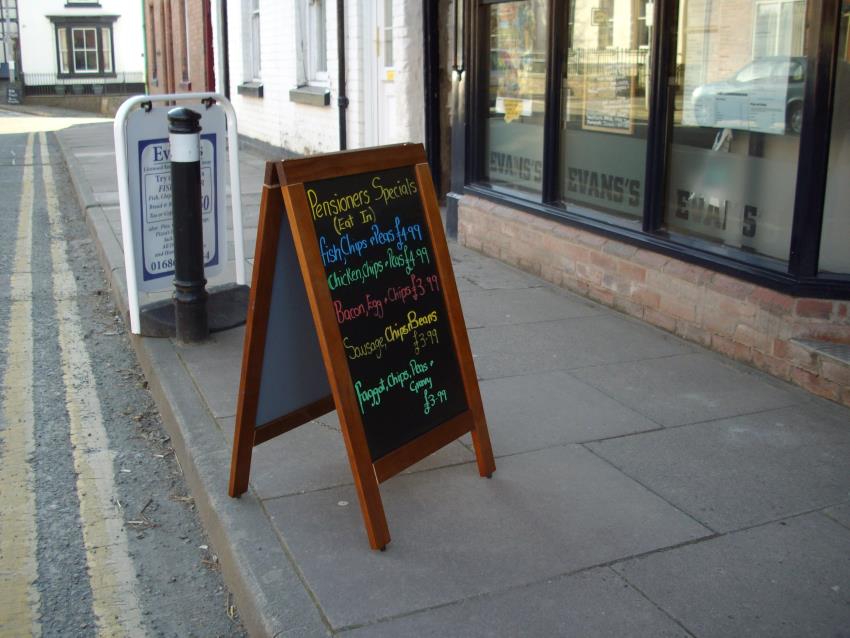 Pensioners Specials
(Eat In)
Fish, Chips + Peas £4.99
Chicken, Chips + Peas £4.99
Bacon, Egg + Chips £3.99
Sausage, Chips + Beans
£3.99
Faggot, Chips, Peas +
Gravy
£3.99
EVANS'S
EVANS'S
EVANS